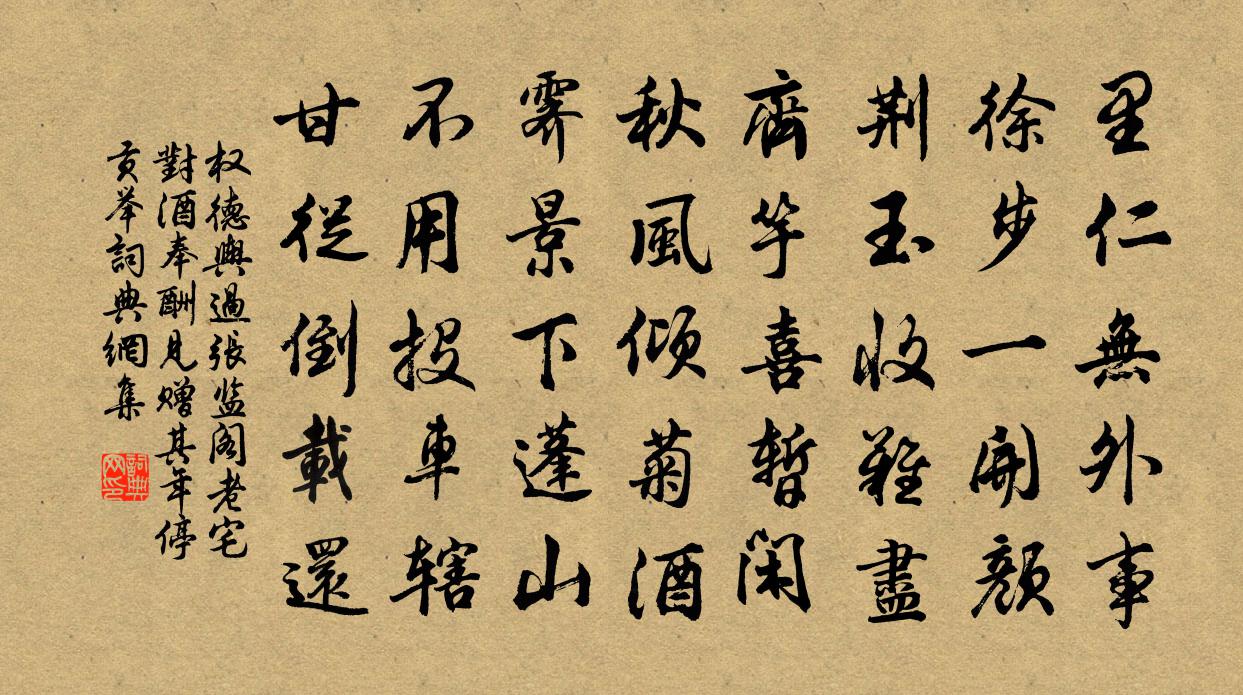 里仁無外事
徐步一開顏
荆玉收難盡
齊竽喜暫閑
秋風傾菊酒
霽景下蓬山
不用投車辖
甘從倒載還
权德輿過張监阁老宅
對酒奉酬見赠其年停
贡举詞典網集
詞典网印